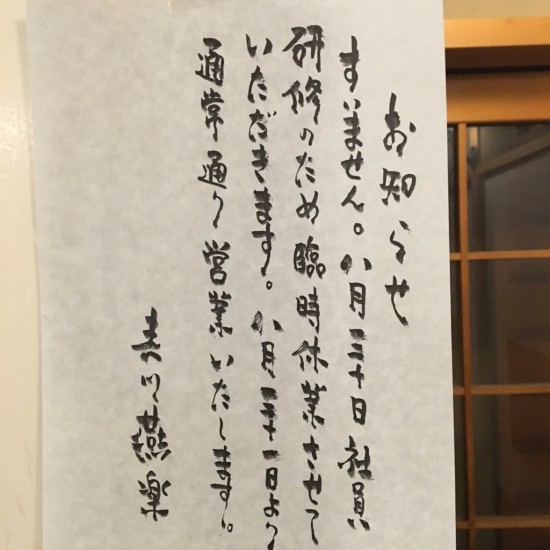 お知らせ
すいません。八月三十日社員
研修のため臨時休業させて
いただきます。八月三十一日より
通常通り営業いたします。
寿川燕楽